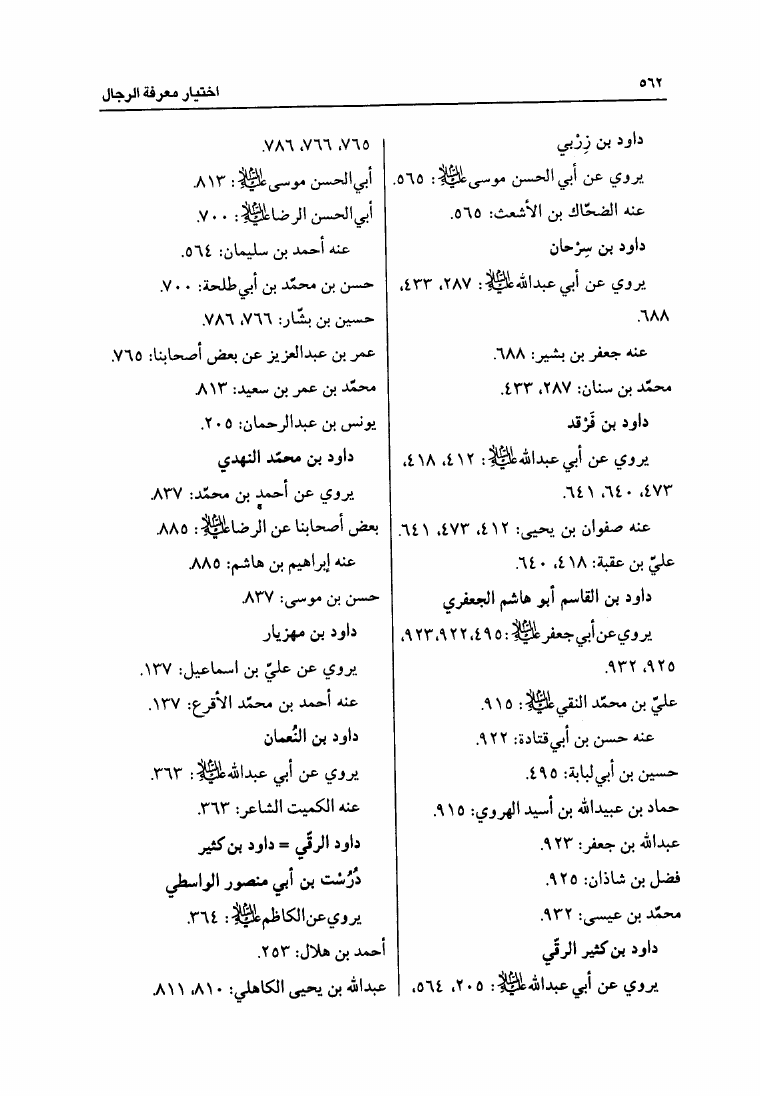 ٥٦٢
اختيار معرفة الرجال
داود بن زِرْبي
يروي عن أبي الحسن موسى عليه السلام: ٥٦٥.
عنه الضحّاك بن الأشعث: ٥٦٥.
داود بن سِرْحان
يروي عن أبي عبدالله عليه السلام: ٢٨٧، ٤٣٣،
٦٨٨.
عنه جعفر بن بشير: ٦٨٨.
محمّد بن سنان: ٢٨٧، ٤٣٣.
داود بن فَرْقد
يروي عن أبي عبدالله عليه السلام: ٤١٢، ٤١٨،
٤٧٣، ٦٤٠، ٦٤١.
عنه صفوان بن يحيى: ٤١٢، ٤٧٣، ٦٤١.
عليّ بن عقبة: ٤١٨، ٦٤٠.
داود بن القاسم أبو هاشم الجعفري
يروي عن أبي جعفر عليه السلام: ٤٩٥، ٩٢٢، ٩٢٣،
٩٢٥، ٩٣٢.
عليّ بن محمّد النقي عليه السلام: ٩١٥.
عنه حسن بن أبي قتادة: ٩٢٢.
حسين بن أبي لبابة: ٤٩٥.
حماد بن عبيدالله بن أسيد الهروي: ٩١٥.
عبدالله بن جعفر: ٩٢٣.
فضل بن شاذان: ٩٢٥.
محمّد بن عيسى: ٩٣٢.
داود بن كثير الرقّي
يروي عن أبي عبدالله عليه السلام: ٢٠٥، ٥٦٤،
٧٦٥، ٧٦٦، ٧٨٦.
أبي الحسن موسى عليه السلام: ٨١٣.
أبي الحسن الرضا عليه السلام: ٧٠٠.
عنه أحمد بن سليمان: ٥٦٤.
حسن بن محمّد بن أبي طلحة: ٧٠٠.
حسين بن بشّار: ٧٦٦، ٧٨٦.
عمر بن عبدالعزيز عن بعض أصحابنا: ٧٦٥.
محمّد بن عمر بن سعيد: ٨١٣.
يونس بن عبدالرحمان: ٢٠٥.
داود بن محمّد النهدي
يروي عن أحمد بن محمّد: ٨٣٧.
بعض أصحابنا عن الرضا عليه السلام: ٨٨٥.
عنه إبراهيم بن هاشم: ٨٨٥.
حسن بن موسى: ٨٣٧.
داود بن مهزيار
يروي عن عليّ بن اسماعيل: ١٣٧.
عنه أحمد بن محمّد الأقرع: ١٣٧.
داود بن النُعمان
يروي عن أبي عبدالله عليه السلام: ٣٦٣.
عنه الكميت الشاعر: ٣٦٣.
داود الرقّي = داود بن كثير
دُرُسْت بن أبي منصور الواسطي
يروي عن الكاظم عليه السلام: ٣٦٤.
أحمد بن هلال: ٢٥٣.
عبدالله بن يحيى الكاهلي: ٨١٠، ٨١١.